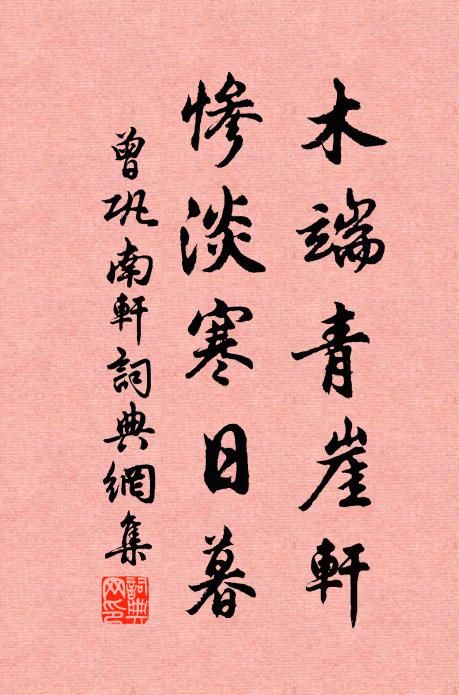 木端青崖軒
慘淡寒日暮
曾巩南軒詞典網集
詞典网印